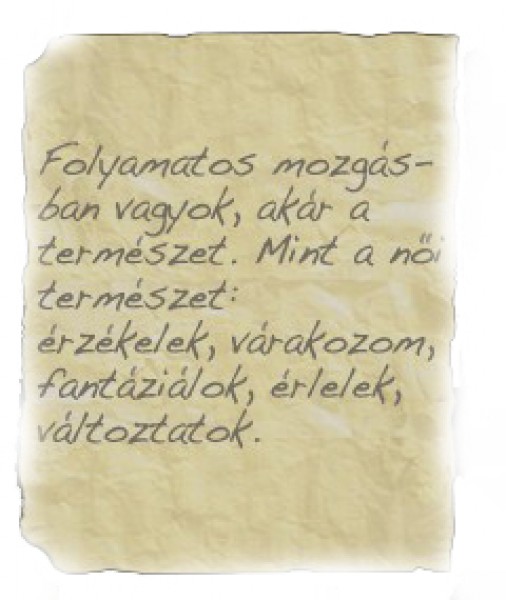 Folyamatos mozgás-
ban vagyok, akár a
természet. Mint a női
természet:
érzékelek, várakozom,
fantáziálok, érlelek,
változtatok.